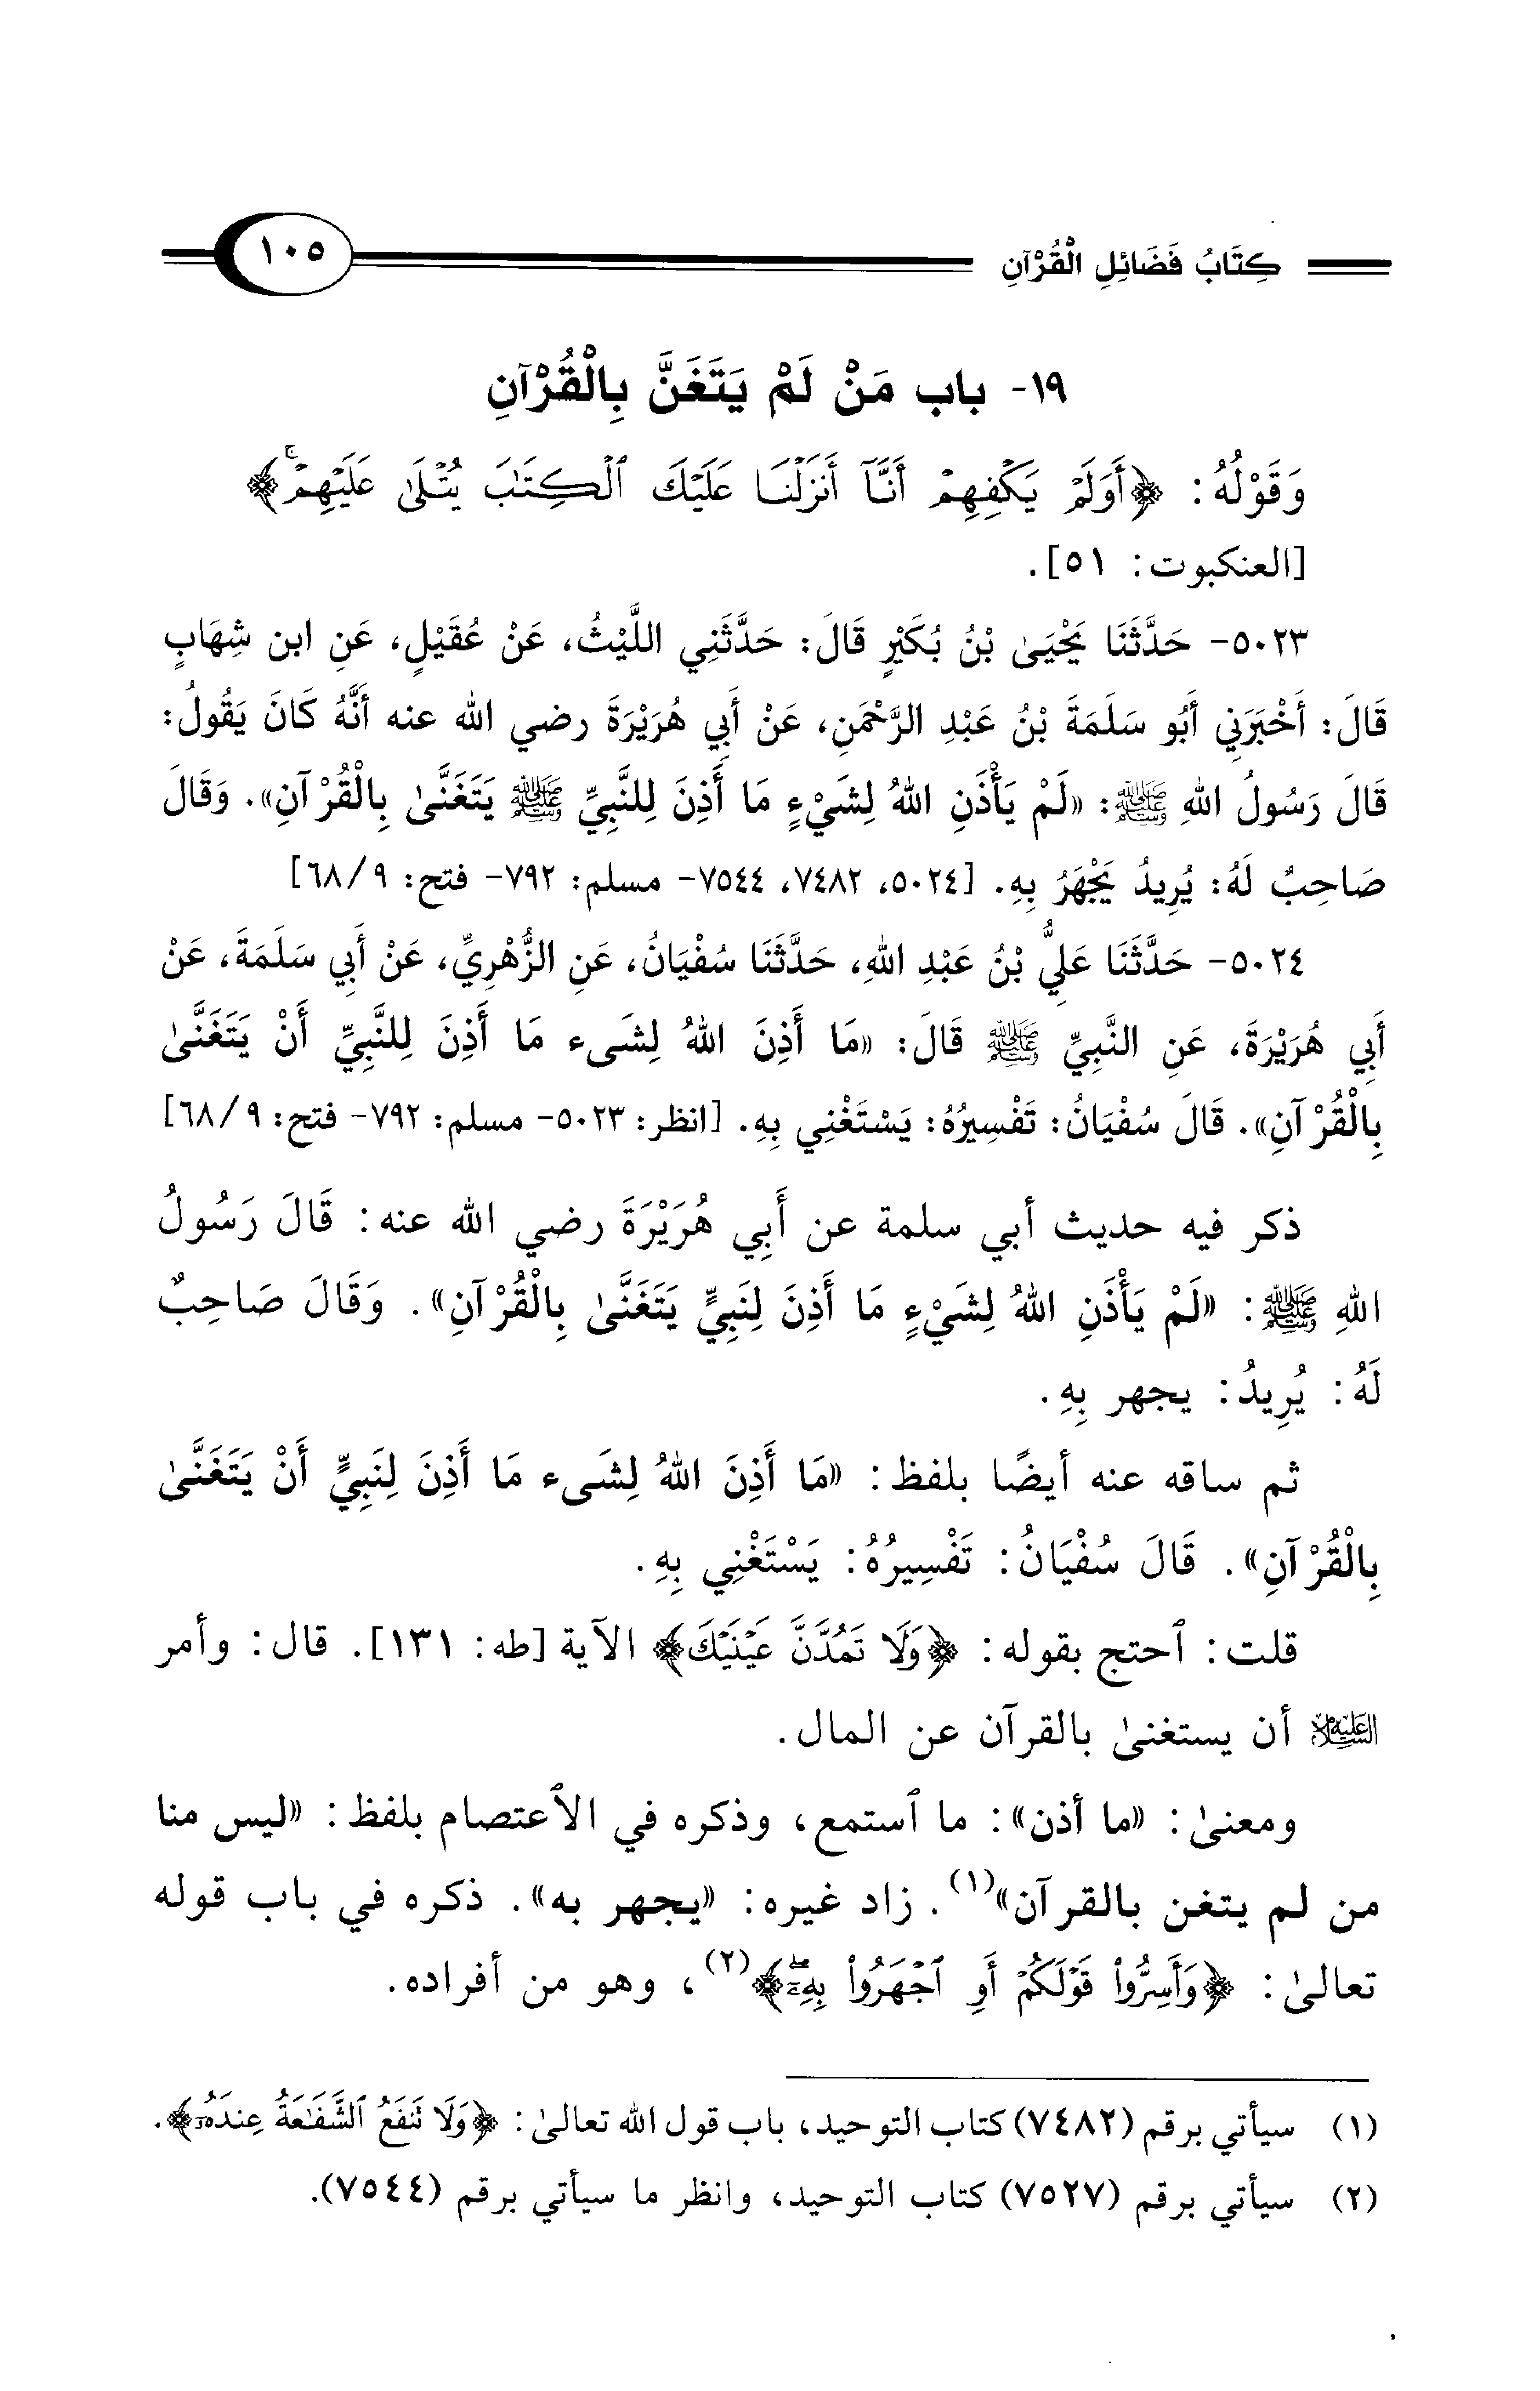 كِتَابُ فَضَائِلِ الْقُرْآنِ ١٠٥
١٩- باب مَنْ لَمْ يَتَغَنَّ بِالْقُرْآنِ
وَقَوْلُهُ: ﴿أَوَلَمْ يَكْفِهِمْ أَنَّآ أَنزَلْنَا عَلَيْكَ ٱلْكِتَٰبَ يُتْلَىٰ عَلَيْهِمْۚ﴾
[العنكبوت: ٥١].
٥٠٢٣- حَدَّثَنَا يَحْيَىٰ بْنُ بُكَيْرٍ قَالَ: حَدَّثَنِي اللَّيْثُ، عَنْ عُقَيْلٍ، عَنِ ابن شِهَابٍ
قَالَ: أَخْبَرَنِي أَبُو سَلَمَةَ بْنُ عَبْدِ الرَّحْمَنِ، عَنْ أَبِي هُرَيْرَةَ رضي الله عنه أَنَّهُ كَانَ يَقُولُ:
قَالَ رَسُولُ اللهِ ﷺ: «لَمْ يَأْذَنِ اللهُ لِشَيْءٍ مَا أَذِنَ لِلنَّبِيِّ ﷺ يَتَغَنَّىٰ بِالْقُرْآنِ». وَقَالَ
صَاحِبٌ لَهُ: يُرِيدُ يَجْهَرُ بِهِ. [٥٠٢٤، ٧٤٨٢، ٧٥٤٤- مسلم: ٧٩٢- فتح: ٩/ ٦٨]
٥٠٢٤- حَدَّثَنَا عَلِيُّ بْنُ عَبْدِ اللهِ، حَدَّثَنَا سُفْيَانُ، عَنِ الزُّهْرِيِّ، عَنْ أَبِي سَلَمَةَ، عَنْ
أَبِي هُرَيْرَةَ، عَنِ النَّبِيِّ ﷺ قَالَ: «مَا أَذِنَ اللهُ لِشَىء مَا أَذِنَ لِلنَّبِيِّ أَنْ يَتَغَنَّىٰ
بِالْقُرْآنِ». قَالَ سُفْيَانُ: تَفْسِيرُهُ: يَسْتَغْنِي بِهِ. [انظر: ٥٠٢٣- مسلم: ٧٩٢- فتح: ٩/ ٦٨]
ذكر فيه حديث أبي سلمة عن أَبِي هُرَيْرَةَ رضي الله عنه: قَالَ رَسُولُ
اللهِ ﷺ: «لَمْ يَأْذَنِ اللهُ لِشَيْءٍ مَا أَذِنَ لِنَبِيٍّ يَتَغَنَّىٰ بِالْقُرْآنِ». وَقَالَ صَاحِبٌ
لَهُ: يُرِيدُ: يجهر بِهِ.
ثم ساقه عنه أيضًا بلفظ: «مَا أَذِنَ اللهُ لِشَىء مَا أَذِنَ لِنَبِيٍّ أَنْ يَتَغَنَّىٰ
بِالْقُرْآنِ». قَالَ سُفْيَانُ: تَفْسِيرُهُ: يَسْتَغْنِي بِهِ.
قلت: ٱحتج بقوله: ﴿وَلَا تَمُدَّنَّ عَيْنَيْكَ﴾ الآية [طه: ١٣١]. قال: وأمر
العَلَيْهِ السَّلَام أن يستغنىٰ بالقرآن عن المال.
ومعنىٰ: «ما أذن»: ما ٱستمع، وذكره في الٱعتصام بلفظ: «ليس منا
من لم يتغن بالقرآن»(١). زاد غيره: «يجهر به». ذكره في باب قوله
تعالىٰ: ﴿وَأَسِرُّوا۟ قَوْلَكُمْ أَوِ ٱجْهَرُوا۟ بِهِۦٓۖ﴾(٢)، وهو من أفراده.
(١) سيأتي برقم (٧٤٨٢) كتاب التوحيد، باب قول الله تعالىٰ: ﴿وَلَا تَنفَعُ ٱلشَّفَٰعَةُ عِندَهُۥٓ﴾.
(٢) سيأتي برقم (٧٥٢٧) كتاب التوحيد، وانظر ما سيأتي برقم (٧٥٤٤).